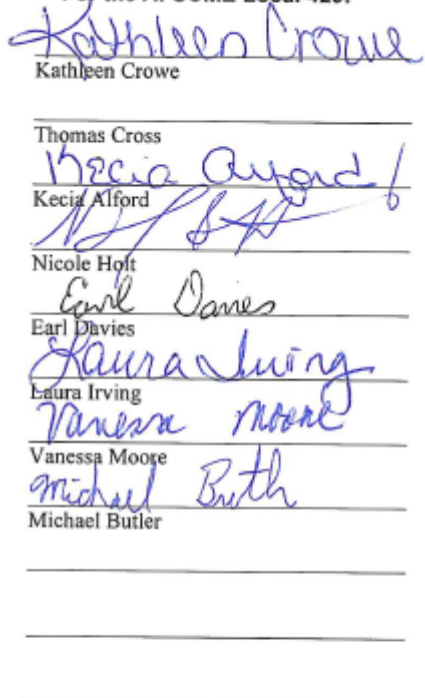 Kathleen Crowe
Kathleen Crowe
Thomas Cross
Kecia Alford
Kecia Alford
Nicole Holt
Earl Davies
Earl Davies
Laura Irving
Laura Irving
Vanessa Moore
Vanessa Moore
Michael
Michael Butler